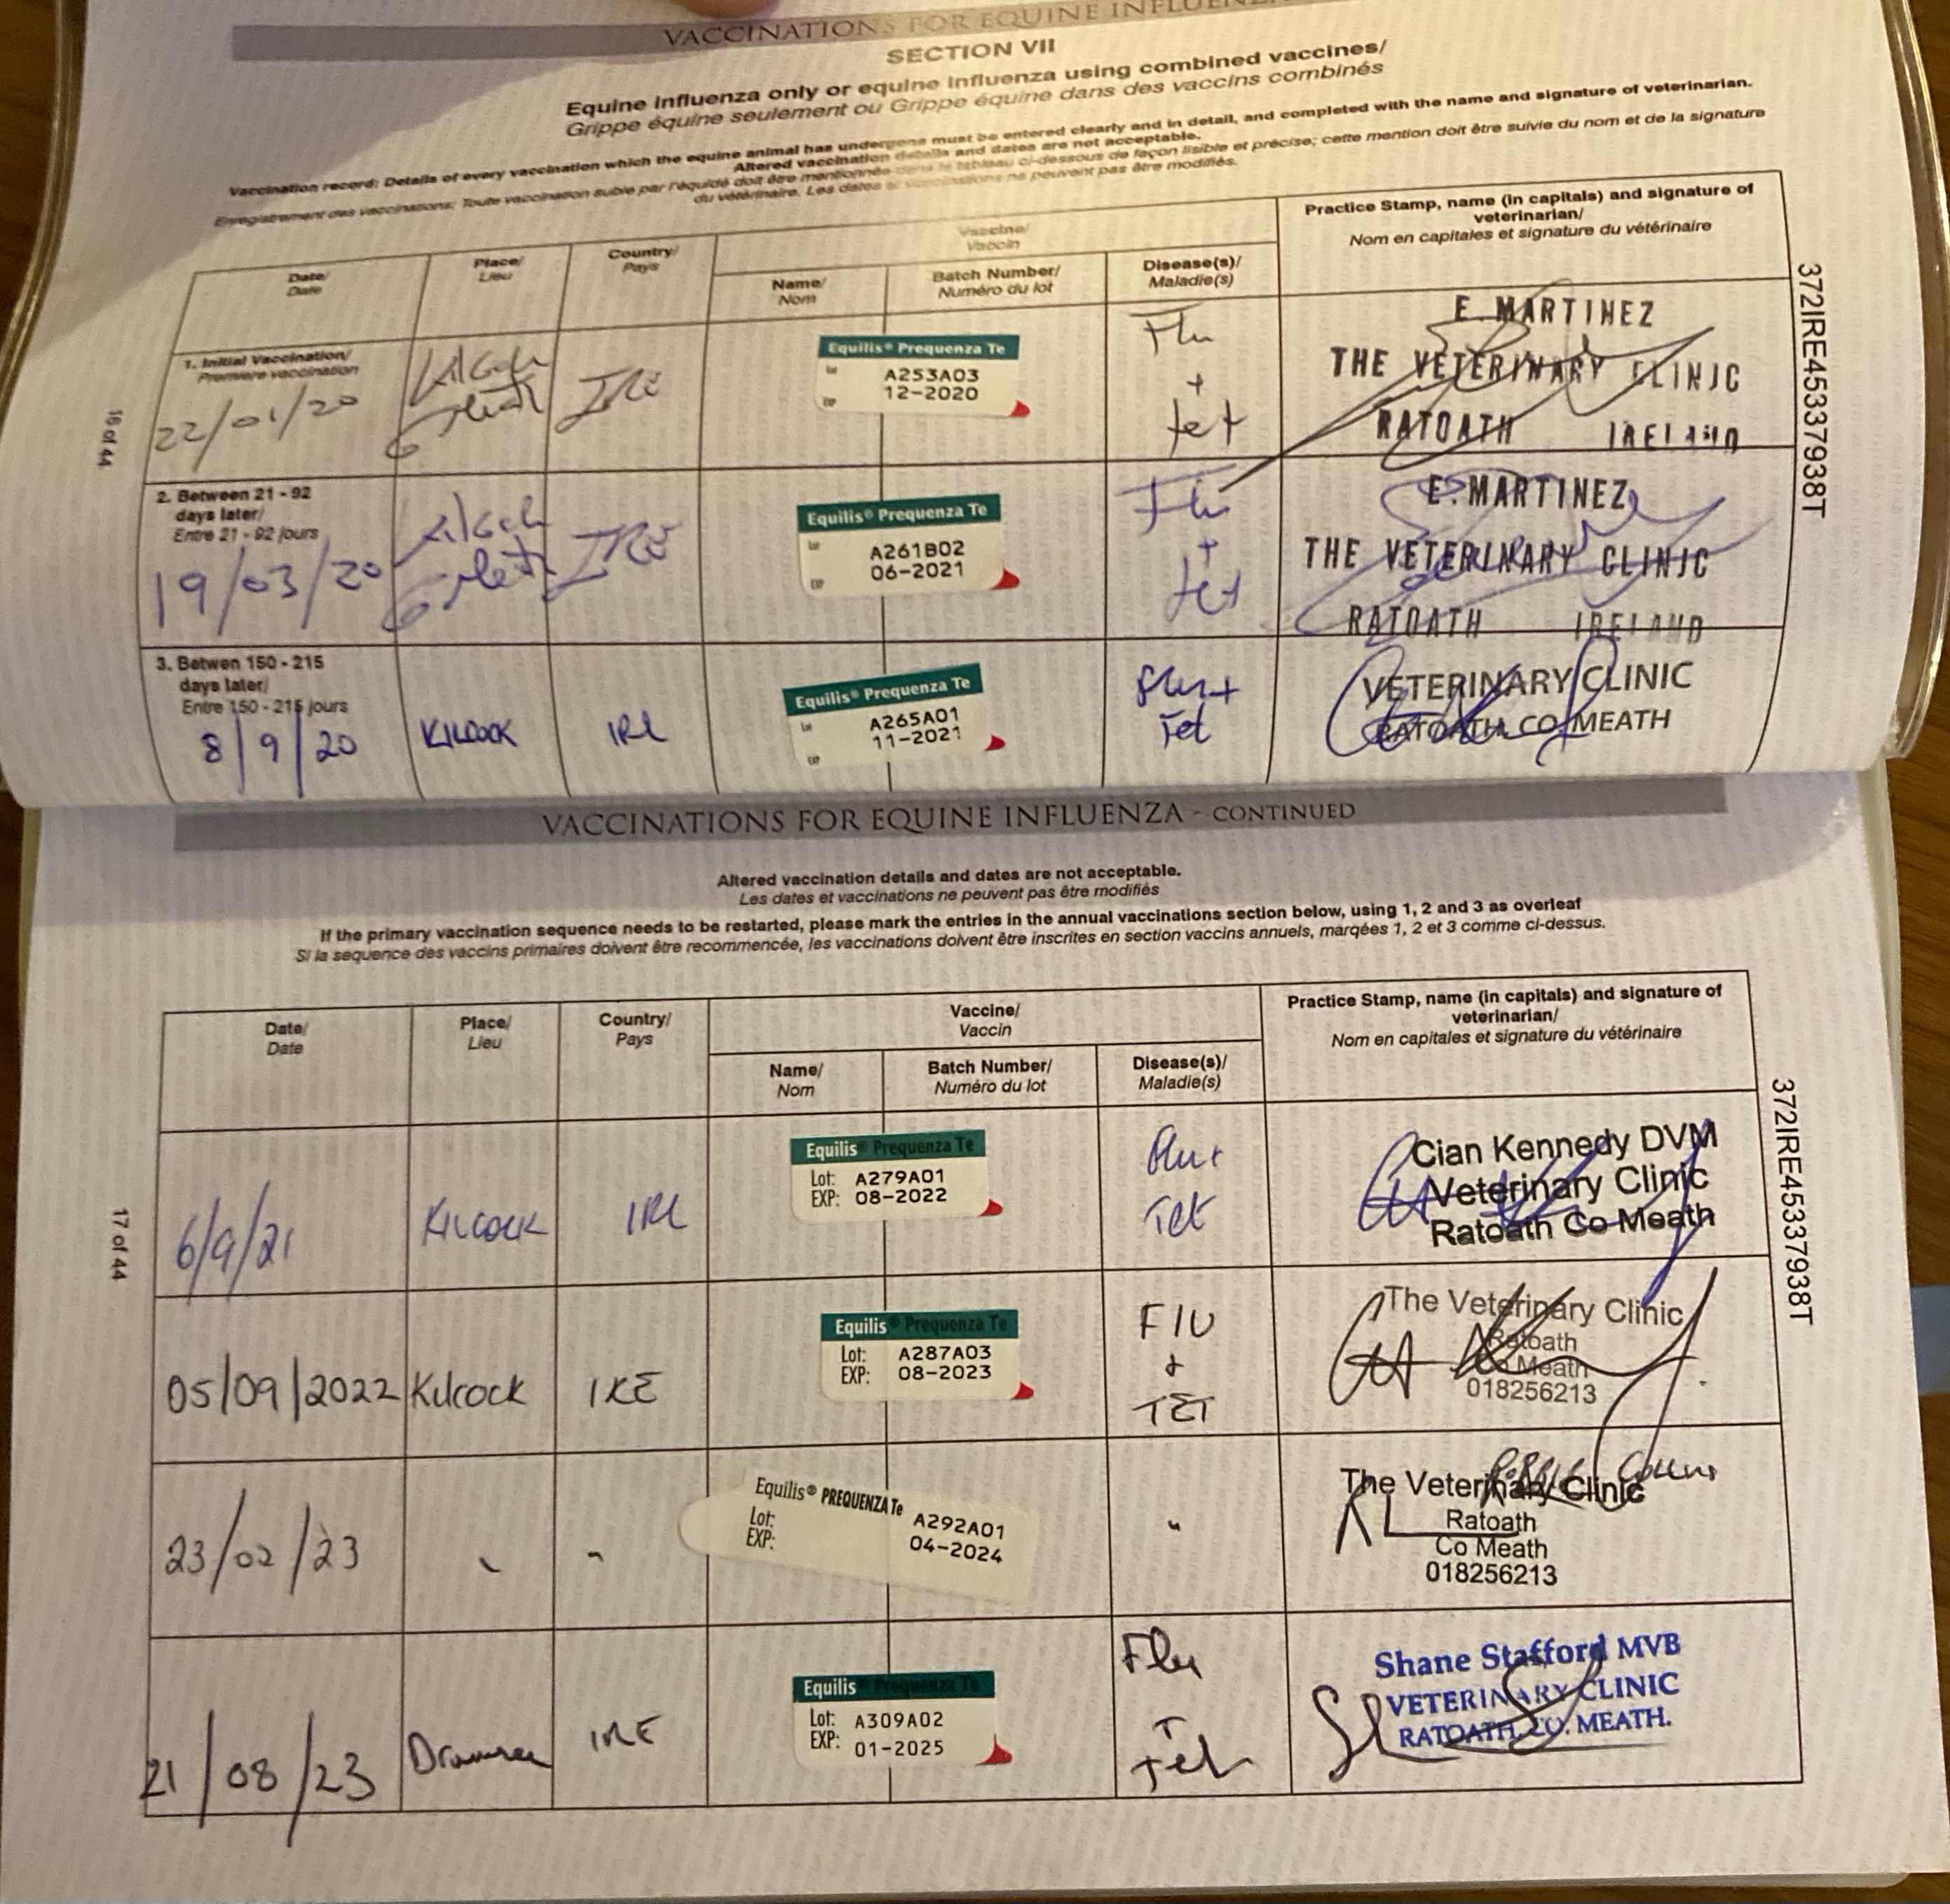 VACCINATIONS FOR EQUINE INFLUENZA
SECTION VII
Equine influenza only or equine influenza using combined vaccines/
Grippe équine seulement ou Grippe équine dans des vaccins combinés
Vaccination record: Details of every vaccination which the equine animal has undergone must be entered clearly and in detail, and completed with the name and signature of veterinarian.
Altered vaccination details and dates are not acceptable.
Enregistrement des vaccinations: Toute vaccination subie par l'équidé doit être mentionnée dans le tableau ci-dessous de façon lisible et précise; cette mention doit être suivie du nom et de la signature
du vétérinaire. Les dates et vaccinations ne peuvent pas être modifiés.
Date/
Date
Place/
Lieu
Country/
Pays
Vaccine/
Vaccin
Name/
Nom
Batch Number/
Numéro du lot
Disease(s)/
Maladie(s)
Practice Stamp, name (in capitals) and signature of
veterinarian/
Nom en capitales et signature du vétérinaire
1. Initial Vaccination/
Premiere vaccination
22/01/20
IRE
Equilis® Prequenza Te
Lot
A253A03
EXP
12-2020
Flu
+
tet
E. MARTINEZ
THE VETERINARY CLINIC
RATOATH IRELAND
2. Between 21 - 92
days later/
Entre 21 - 92 jours
19/03/20
IRE
Equilis® Prequenza Te
Lot
A261B02
EXP
06-2021
Flu
+
tet
E. MARTINEZ
THE VETERINARY CLINIC
RATOATH IRELAND
3. Betwen 150 - 215
days later/
Entre 150 - 215 jours
8/9/20
KILCOCK
IRL
Equilis® Prequenza Te
Lot
A265A01
EXP
11-2021
Flu +
Tet
VETERINARY CLINIC
RATOATH, CO. MEATH
16 of 44
372IRE45337938T
VACCINATIONS FOR EQUINE INFLUENZA - CONTINUED
Altered vaccination details and dates are not acceptable.
Les dates et vaccinations ne peuvent pas être modifiés
If the primary vaccination sequence needs to be restarted, please mark the entries in the annual vaccinations section below, using 1, 2 and 3 as overleaf
Si la sequence des vaccins primaires doivent être recommencée, les vaccinations doivent être inscrites en section vaccins annuels, marqées 1, 2 et 3 comme ci-dessus.
Date/
Date
Place/
Lieu
Country/
Pays
Vaccine/
Vaccin
Name/
Nom
Batch Number/
Numéro du lot
Disease(s)/
Maladie(s)
Practice Stamp, name (in capitals) and signature of
veterinarian/
Nom en capitales et signature du vétérinaire
6/9/21
KILCOCK
IRL
Equilis® Prequenza Te
Lot: A279A01
EXP: 08-2022
Flu +
Tet
Cian Kennedy DVM
Veterinary Clinic
Ratoath Co Meath
05/09/2022
Kilcock
IRE
Equilis® Prequenza Te
Lot: A287A03
EXP: 08-2023
Flu
&
TET
The Veterinary Clinic
Ratoath
Co Meath
018256213
23/02/23
Equilis® PREQUENZA Te
Lot: A292A01
EXP: 04-2024
"
The Veterinary Clinic
Ratoath
Co Meath
018256213
21/08/23
IRE
Equilis® Prequenza Te
Lot: A309A02
EXP: 01-2025
Flu
Tet
Shane Stafford MVB
VETERINARY CLINIC
RATOATH, CO. MEATH.
17 of 44
372IRE45337938T